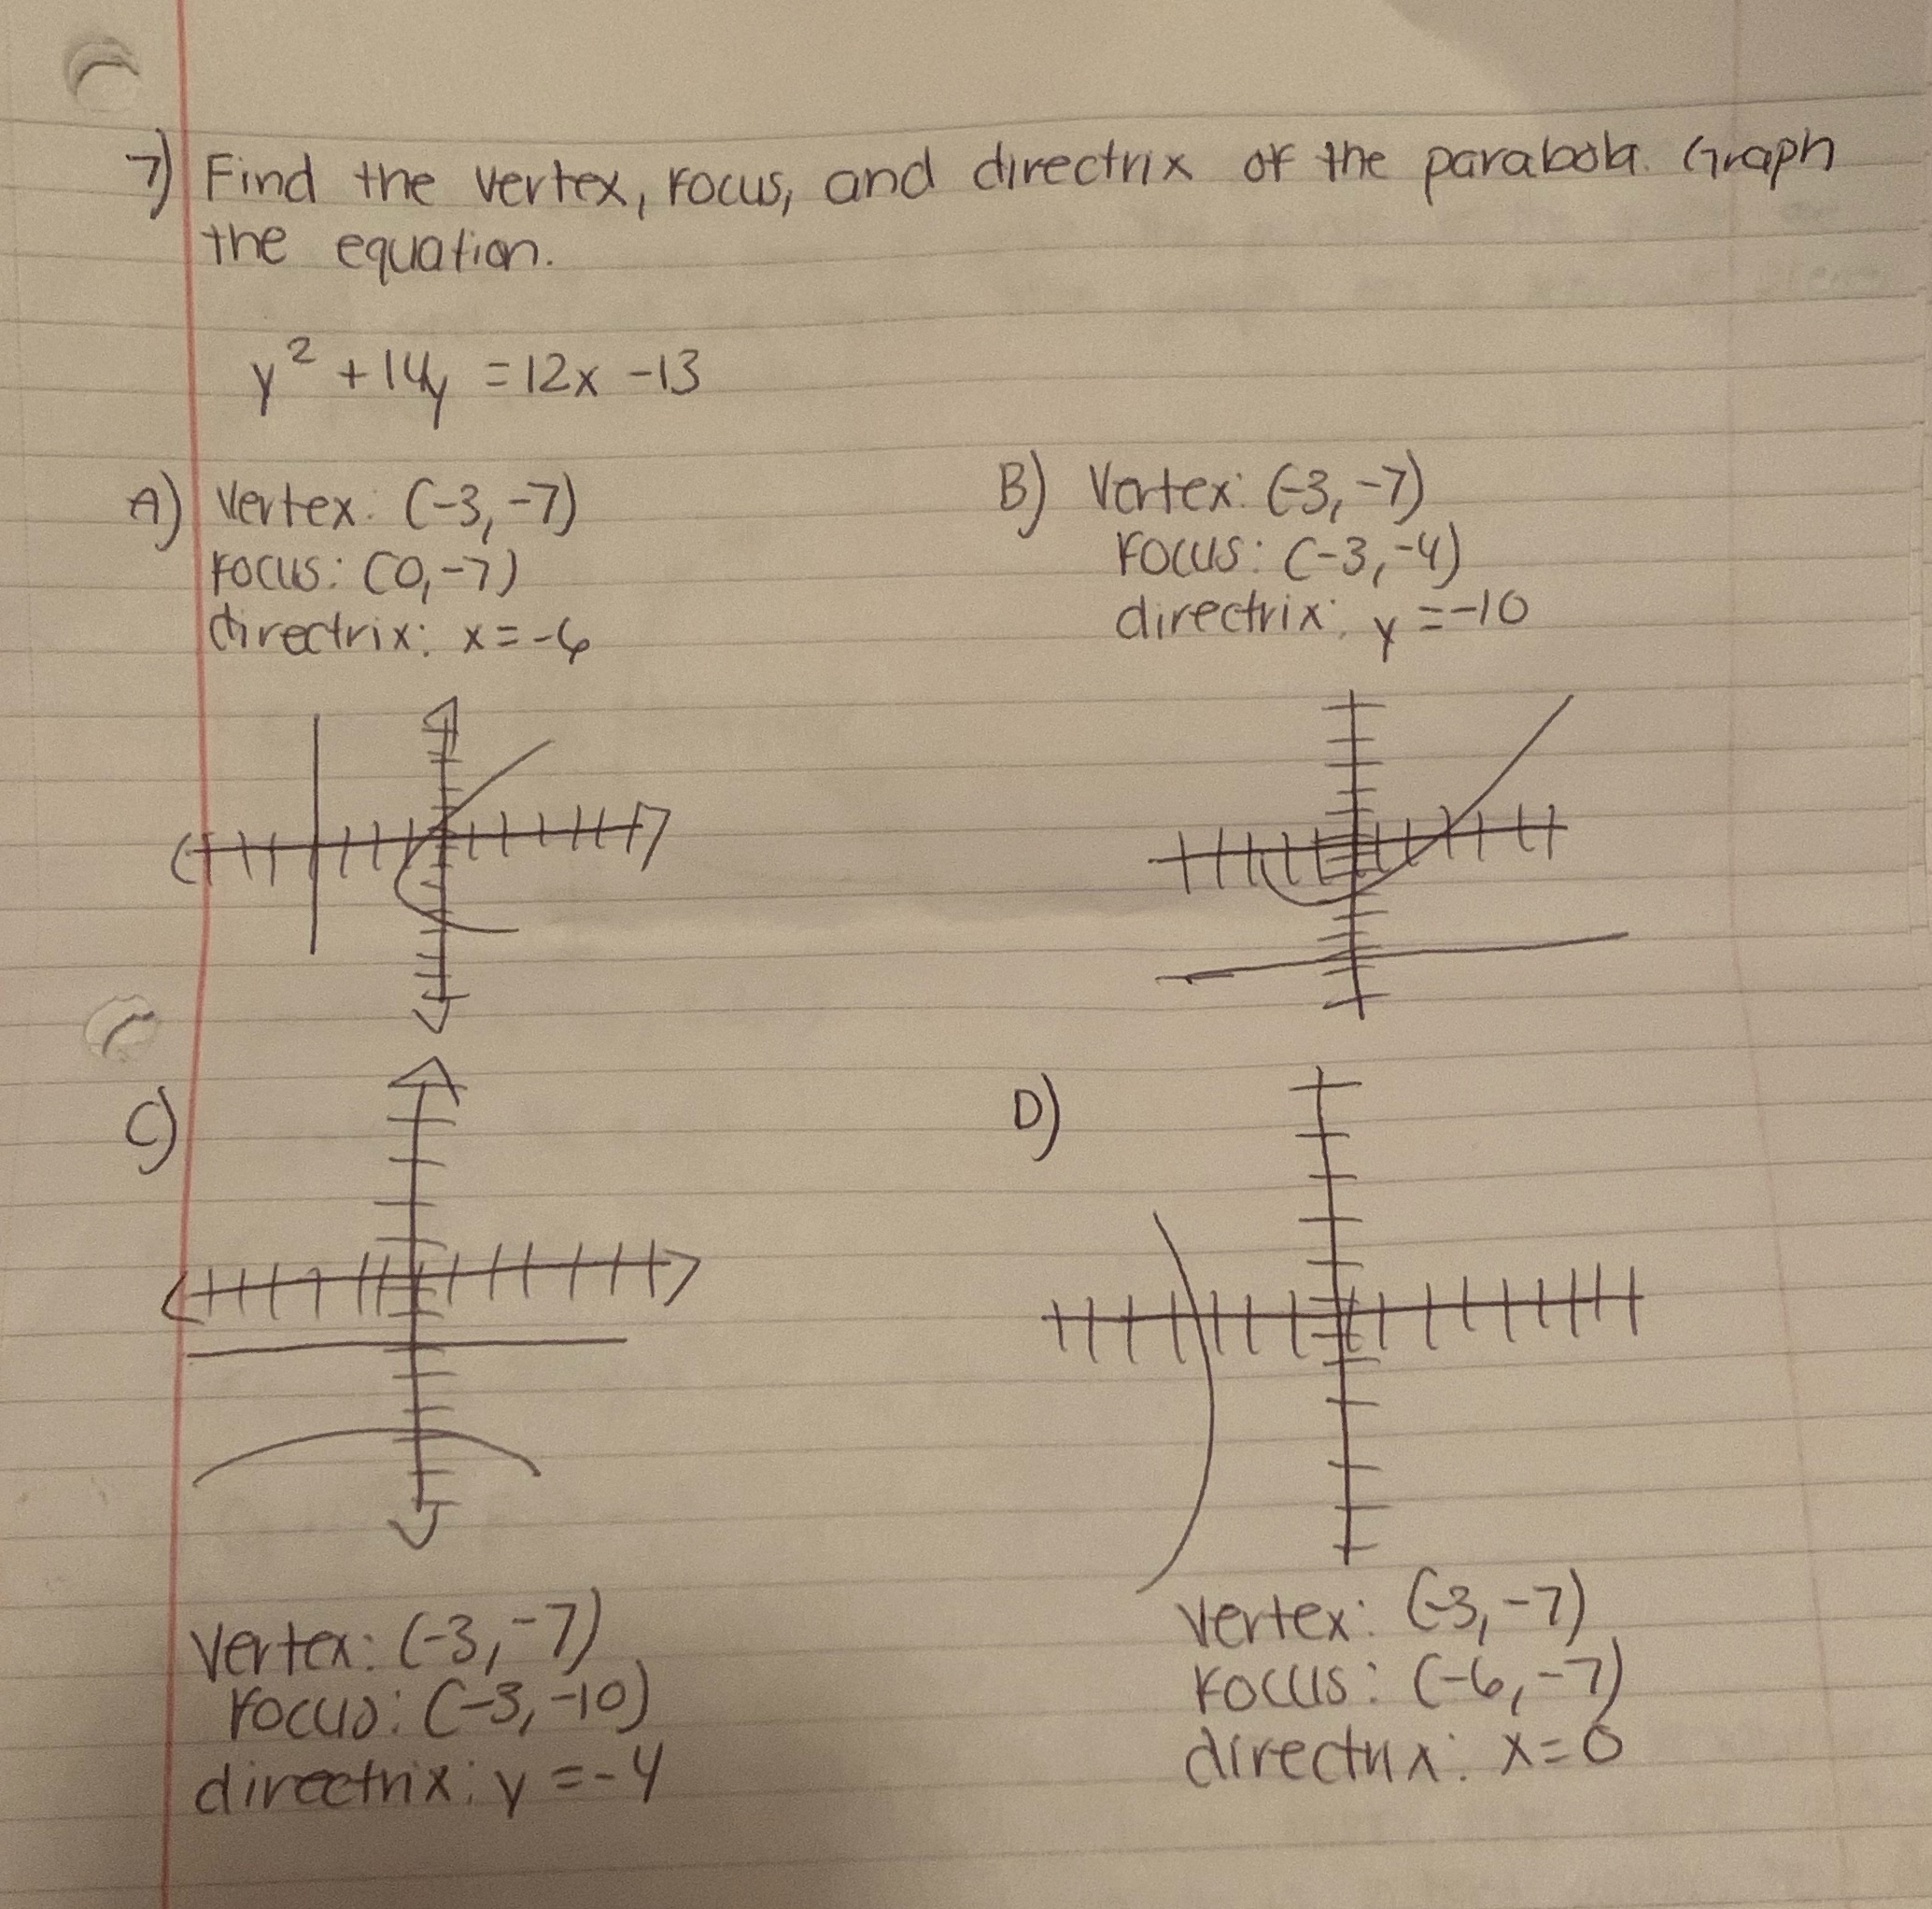 7) Find the vertex, focus, and directrix of the parabola. Graph
the equation.
y² + 14y = 12x - 13
A) Vertex: (-3, -7)
focus: (0, -7)
directrix: x = -6
B) Vertex: (-3, -7)
focus: (-3, -4)
directrix: y = -10
C)
Vertex: (-3, -7)
focus: (-3, -10)
directrix: y = -4
D)
Vertex: (-3, -7)
focus: (-6, -7)
directrix: x = 0